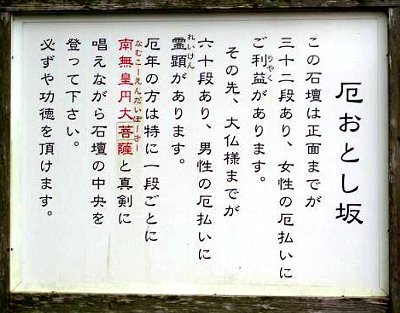 厄おとし坂
この石壇は正面までが
三十二段あり、女性の厄払いに
ご利益があります。
その先、大仏様までが
六十段あり、男性の厄払いに
霊顕があります。
厄年の方は特に一段ごとに
南無皇円大菩薩と真剣に
唱えながら石壇の中央を
登って下さい。
必ずや功徳を頂けます。